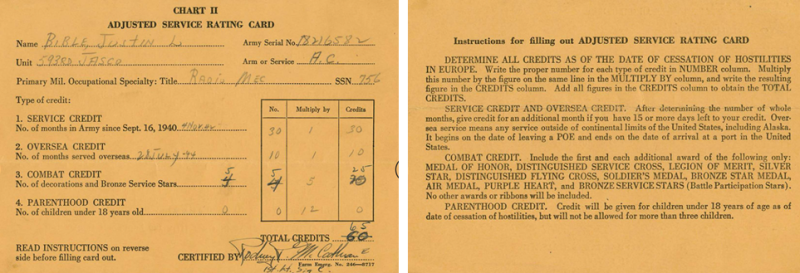 CHART II
ADJUSTED SERVICE RATING CARD
Name BIBLE, JUSTIN L Army Serial No. 18216582
Unit 593RD JASCO Arm or Service A.C.
Primary Mil. Occupational Specialty: Title RADIO MEC SSN. 756
Type of credit:
No. Multiply by Credits
1. SERVICE CREDIT
No. of months in Army since Sept. 16, 1940 30 1 30
2. OVERSEA CREDIT
No. of months served overseas 22 JULY 44 10 1 10
3. COMBAT CREDIT 5 5 25
No. of decorations and Bronze Service Stars 4 4 5 20
4. PARENTHOOD CREDIT
No. of children under 18 years old 0 0 12 0
65
TOTAL CREDITS 60
READ INSTRUCTIONS on reverse
side before filling card out.
CERTIFIED BY
Instructions for filling out ADJUSTED SERVICE RATING CARD
DETERMINE ALL CREDITS AS OF THE DATE OF CESSATION OF HOSTILITIES
IN EUROPE. Write the proper number for each type of credit in NUMBER column. Multiply
this number by the figure on the same line in the MULTIPLY BY column, and write the resulting
figure in the CREDITS column. Add all figures in the CREDITS column to obtain the TOTAL
CREDITS.
SERVICE CREDIT AND OVERSEA CREDIT. After determining the number of whole
months, give credit for an additional month if you have 15 or more days left to your credit. Over-
sea service means any service outside of continental limits of the United States, including Alaska.
It begins on the date of leaving a POE and ends on the date of arrival at a port in the United
States.
COMBAT CREDIT. Include the first and each additional award of the following only:
MEDAL OF HONOR, DISTINGUISHED SERVICE CROSS, LEGION OF MERIT, SILVER
STAR, DISTINGUISHED FLYING CROSS, SOLDIER'S MEDAL, BRONZE STAR MEDAL,
AIR MEDAL, PURPLE HEART, and BRONZE SERVICE STARS (Battle Participation Stars).
No other awards or ribbons will be included.
PARENTHOOD CREDIT. Credit will be given for children under 18 years of age as of
date of cessation of hostilities, but will not be allowed for more than three children.